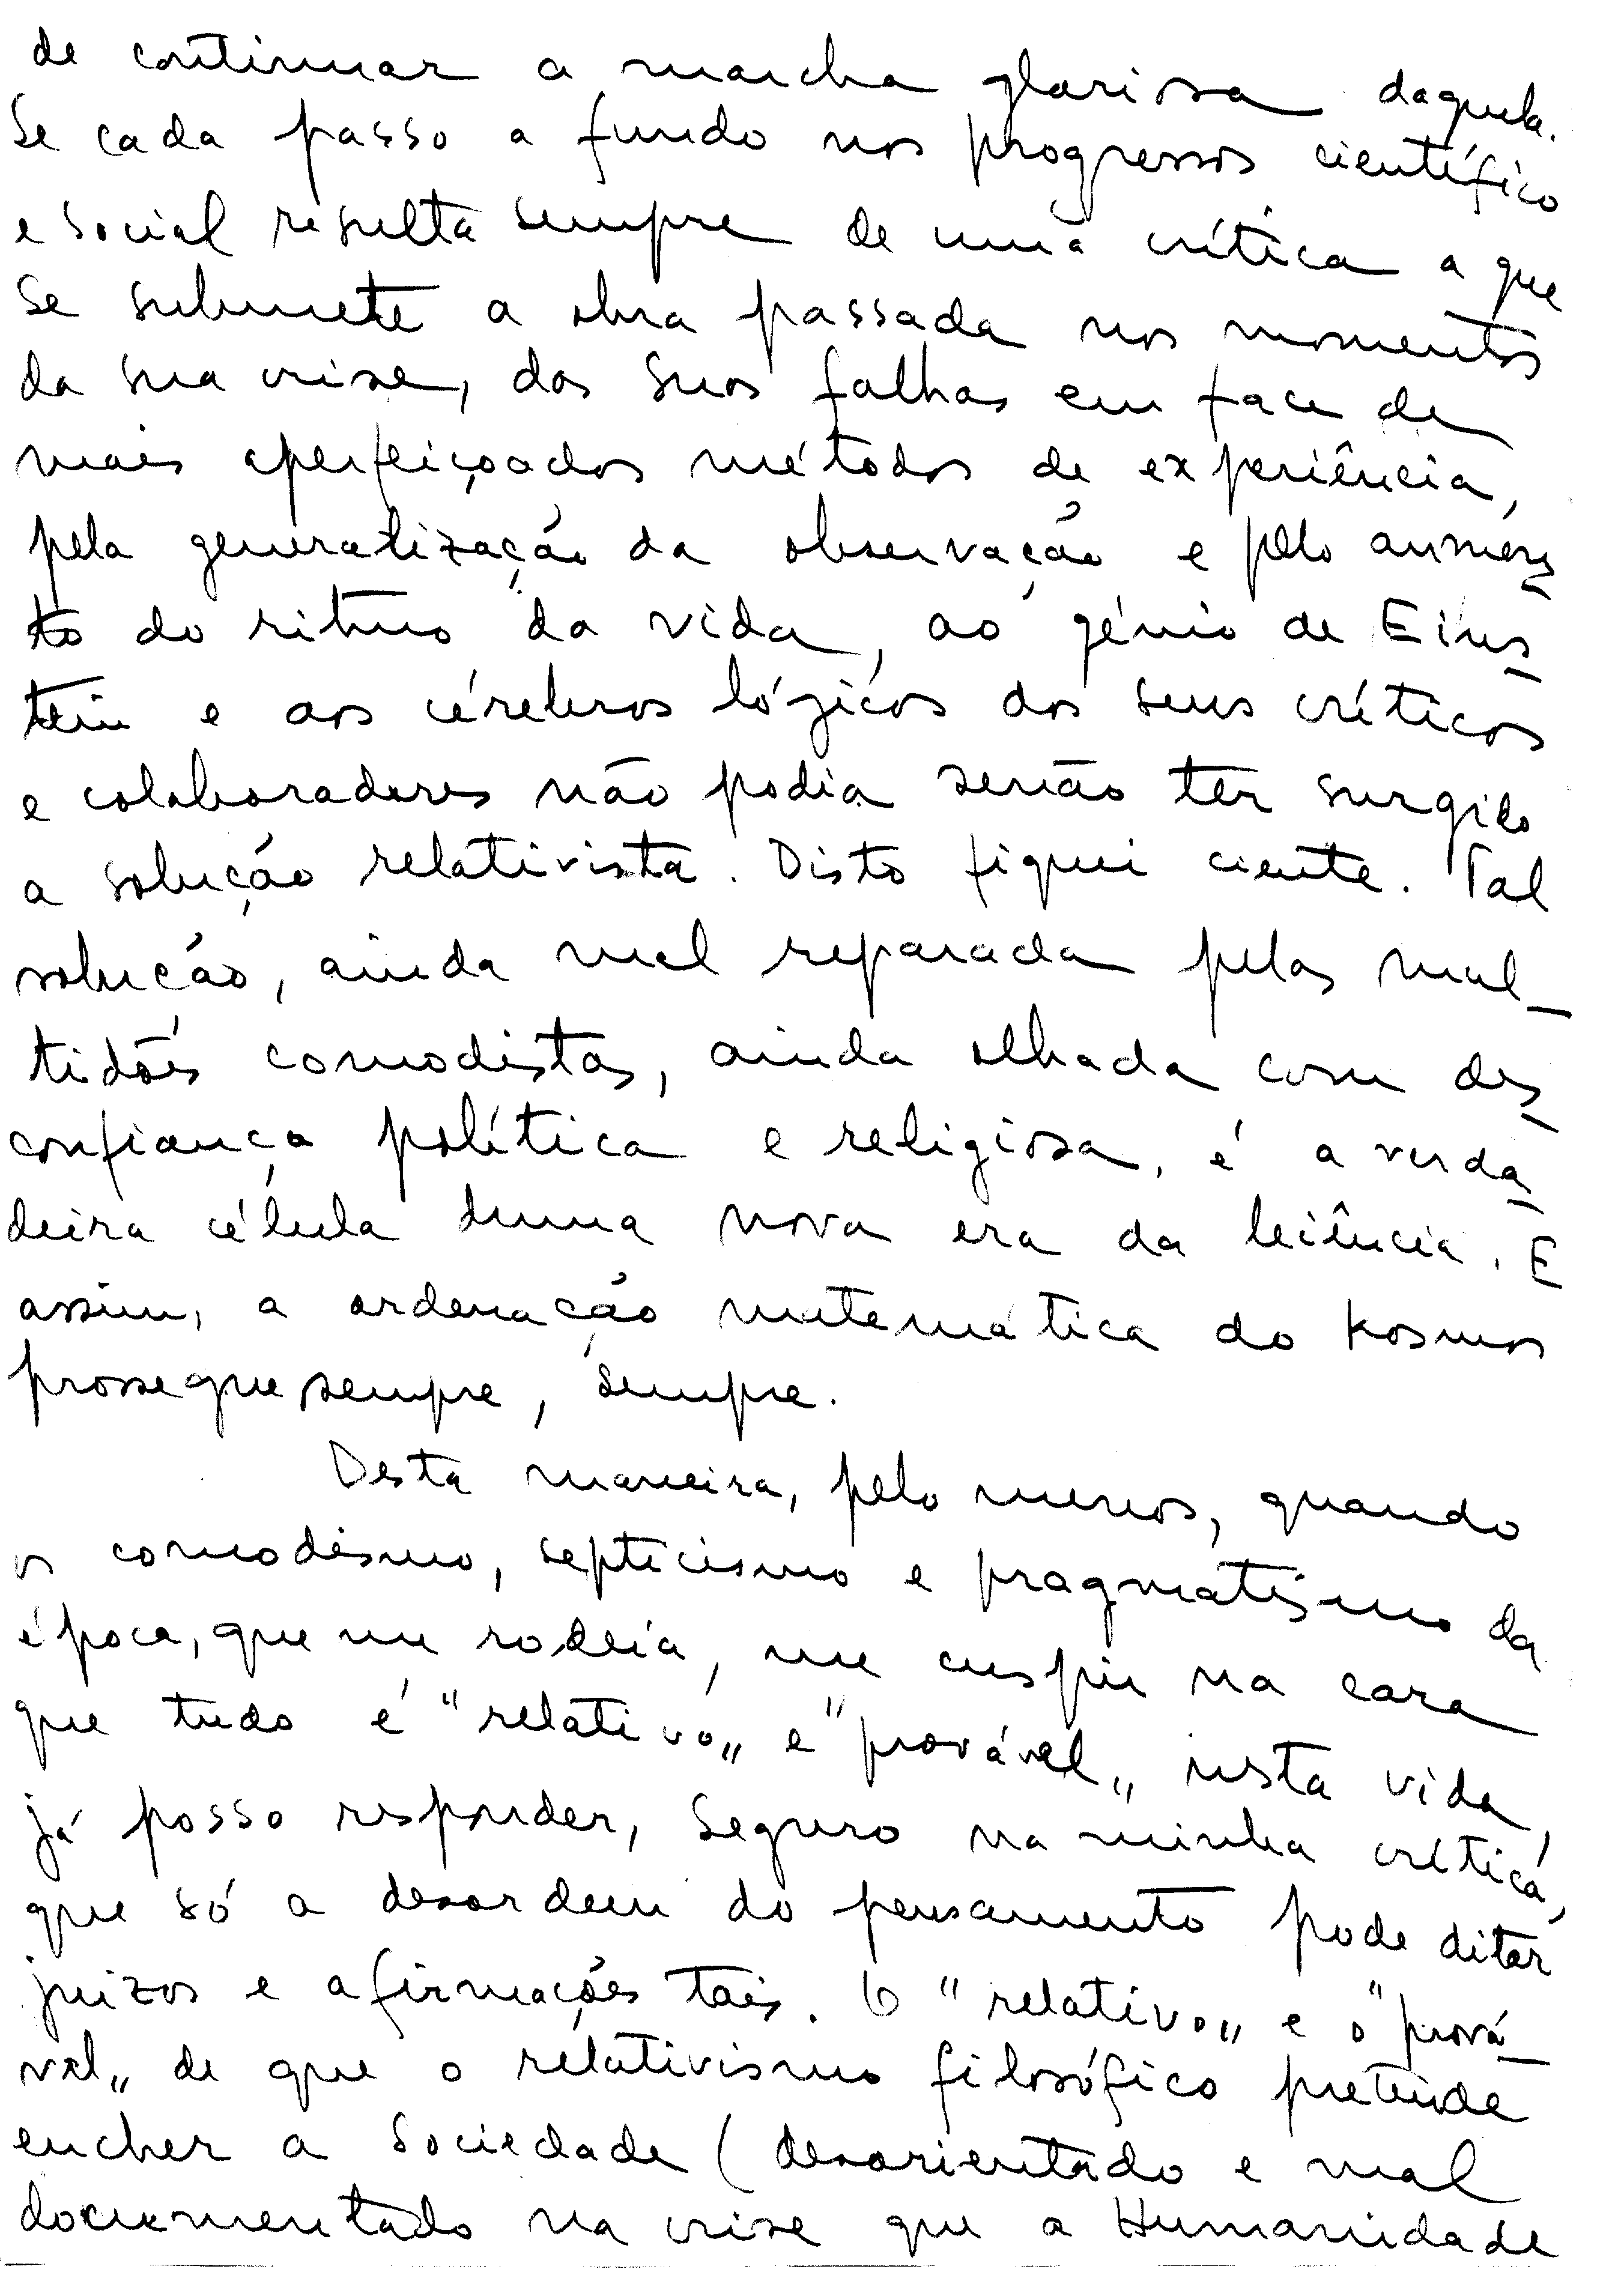 de continuar a marcha gloriosa daquela.
Se cada passo a fundo nos progressos científico
e social resulta sempre de uma crítica a que
se submete a obra passada nos momentos
da sua crise, das suas falhas em face de
mais aperfeiçoados métodos de experiência,
pela generalização da observação e pelo aumen-
to do ritmo da vida, ao génio de Eins-
tein e aos cérebros lógicos dos seus críticos
e colaboradores não podia senão ter surgido
a solução relativista. Disto fiquei ciente. Tal
solução, ainda mal reparada pelas mul-
tidões comodistas, ainda olhada com des-
confiança política e religiosa, é a verda-
deira célula duma nova era da Ciência. E
assim, a ordenação matemática do Kosmos
prossegue sempre, sempre.
Desta maneira, pelo menos, quando
o comodismo, septicismo e pragmatismo da
época, que me rodeia, me cuspir na cara
que tudo é "relativo" e "provável" nesta vida,
já posso responder, seguro na minha crítica,
que só a desordem do pensamento pode ditar
juizos e afirmações tais. O "relativo" e o "prová-
vel" de que o relativismo filosófico pretende
encher a Sociedade (desorientado e mal
documentado na crise que a Humanidade